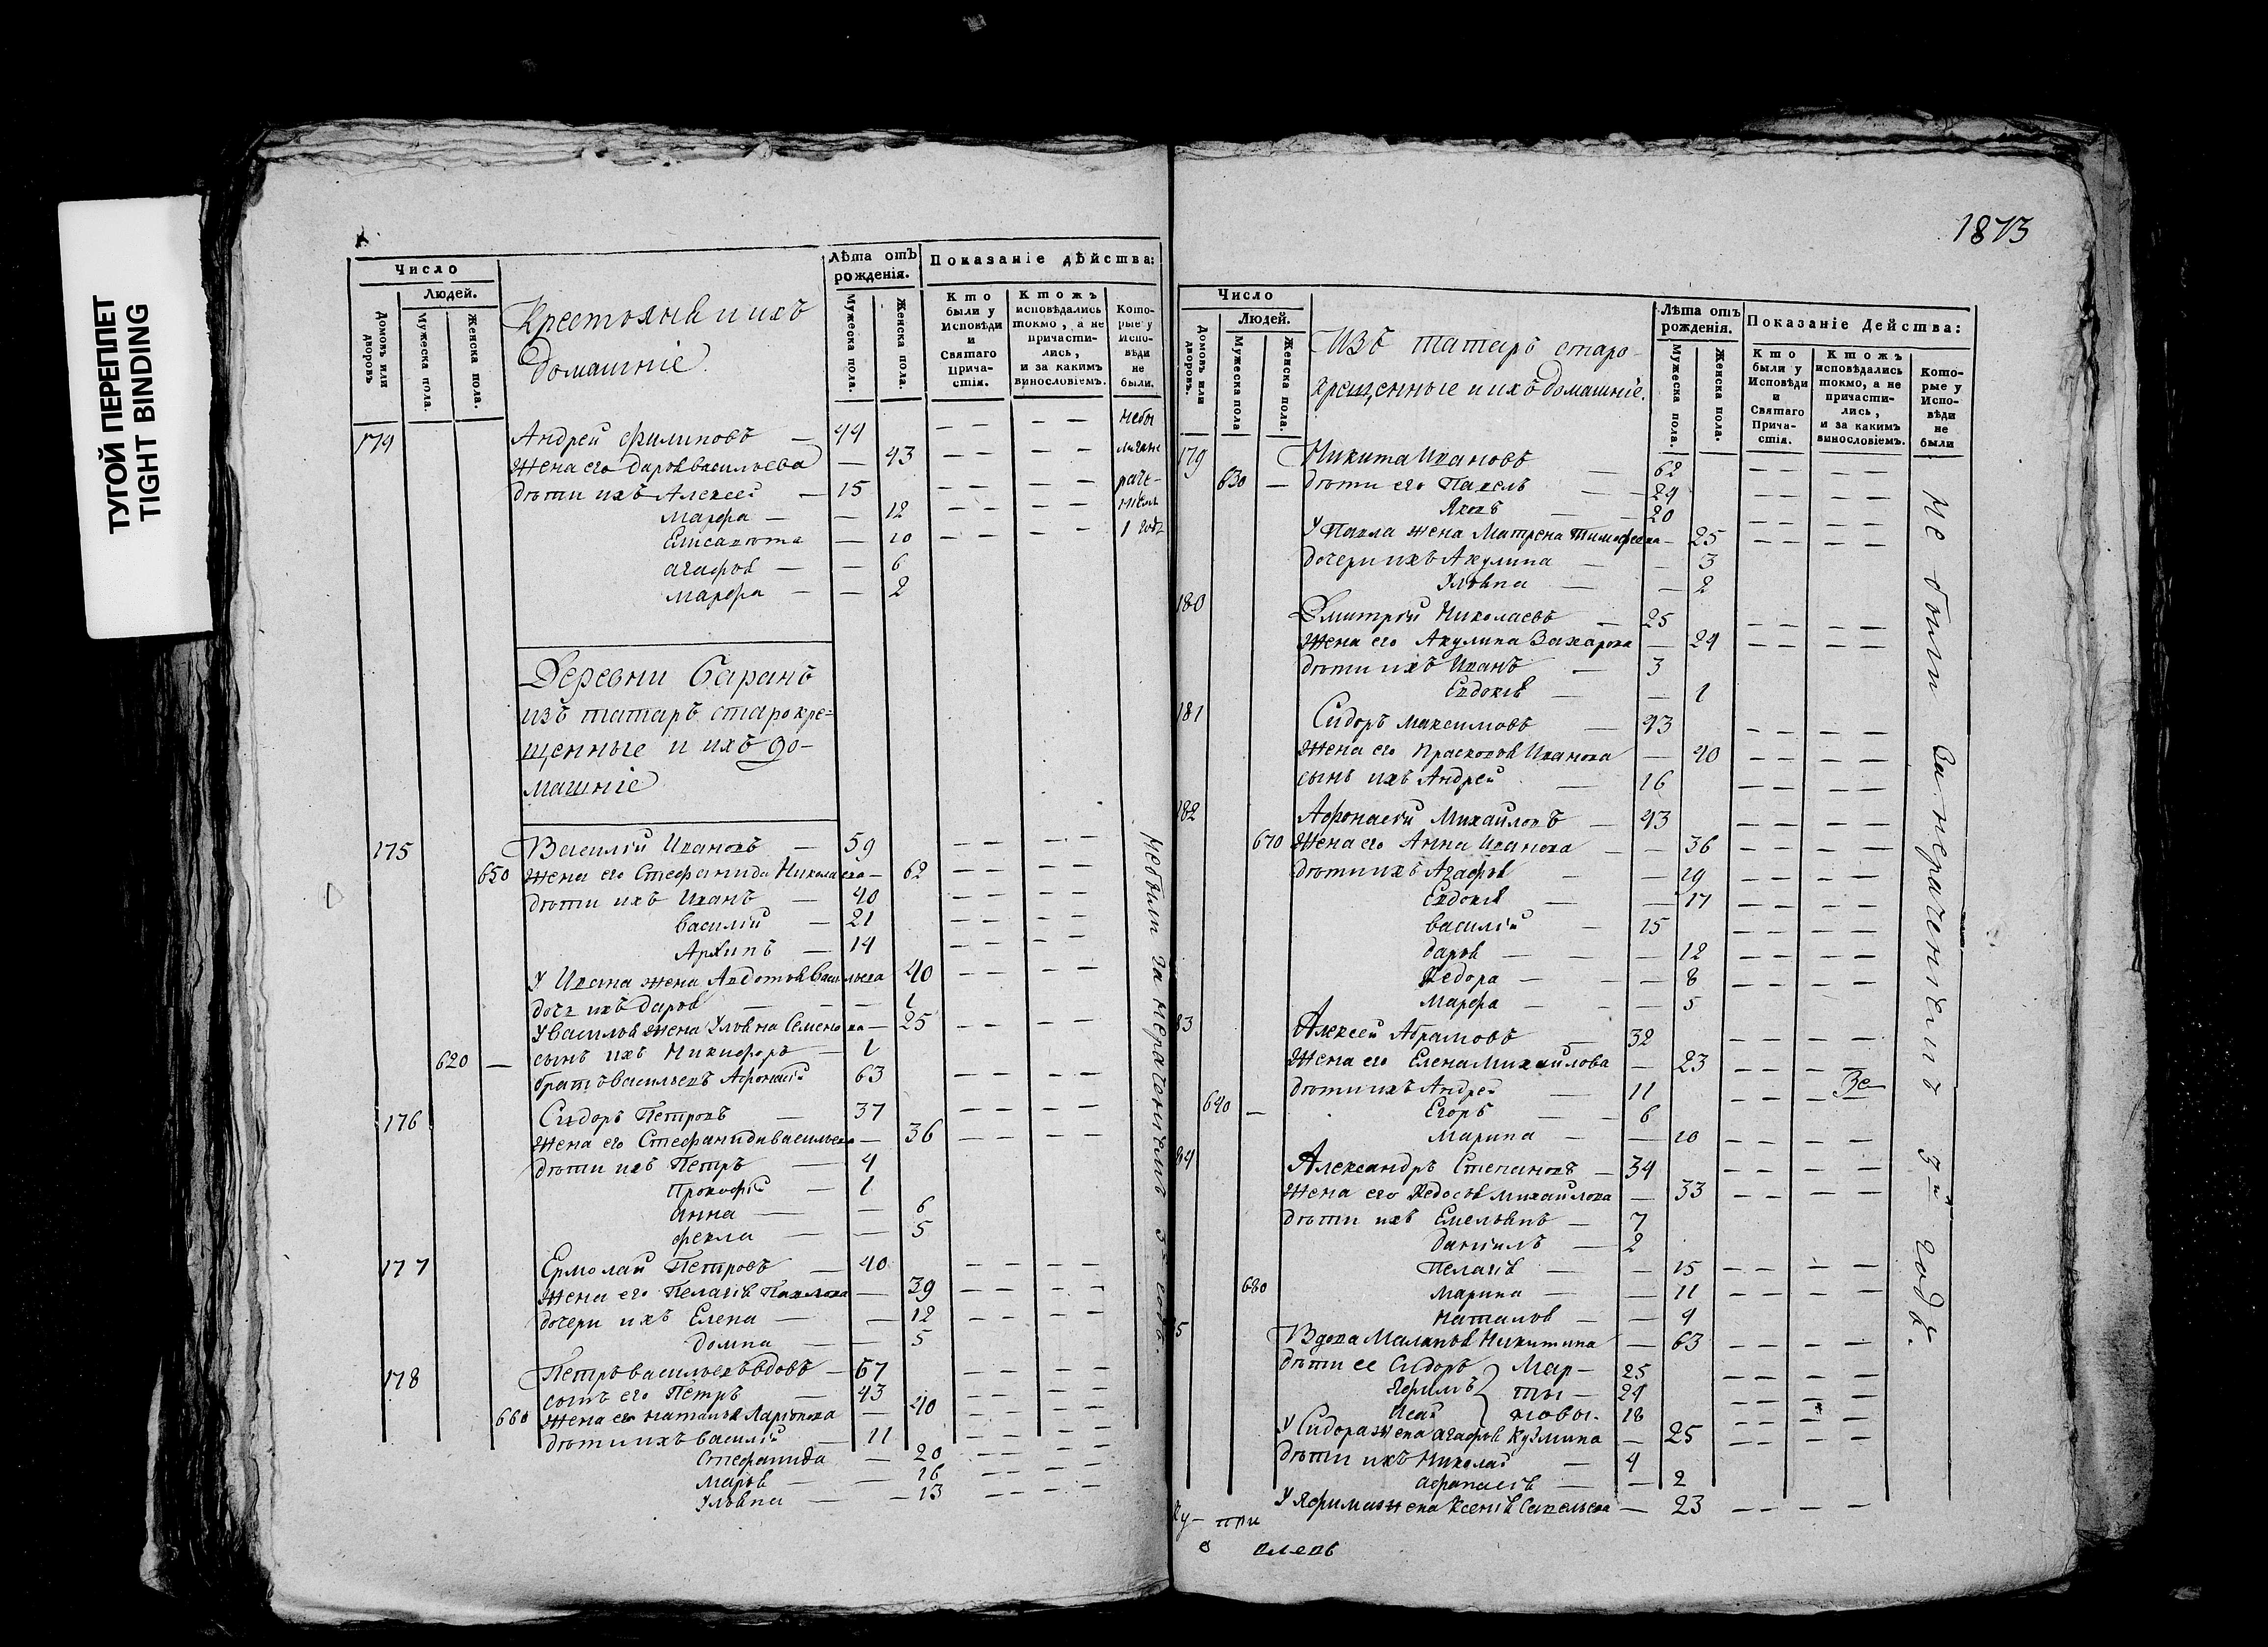 ТУГОЙ ПЕРЕПЛЕТ
TIGHT BINDING
Число
Людей.
Домовъ или дворовъ
Мужеска пола.
Женска пола.
Крестьяня и ихъ
домашніе.
Лѣта отъ рожденія.
Мужеска пола.
Женска пола.
Показаніе дѣйства:
Кто были у Исповѣди и Святаго Причастія.
Ктожъ исповѣдались токмо, а не причастились, и за какимъ винословіемъ.
Которые у Исповѣди не были.
174 Андрей Филиповъ — 44 — — — — небы
Жена его Даря Васильева — 43 — — — — ли за не
дѣти ихъ Алексей — 15 — — — — раче-
Марфа — — 12 — — — — нiемъ
Елисавета — 10 — — — 1 годъ
Агафья — — 6
Марфа — — 2
Деревни Саранъ
изъ татаръ старокре=
щенные и ихъ до-
машніе
175 Василій Ивановъ — 59 — — — —
650 Жена его Стефанида Николаева — 62 — — — —
дѣти ихъ Иванъ — 40 — — — —
Василій — 21 — — — —
Архипъ — 14 — — — —
У Ивана жена Авдотья Васильева 40 — — — —
дочь ихъ Даря — — — 1
У Василья жена Ульяна Семенова — 25 — — — —
620 — сынъ ихъ Никифоръ — 1
братъ Васильевъ Афонасій 63 — — — —
176 Сидоръ Петровъ — 37 — — — —
Жена его Стефанида Васильева — 36 — — — —
дѣти ихъ Петръ — 4
Прокофій — 1
Анна — — 6
Фекла — — 5
177 Ермолай Петровъ — 40 — — — —
Жена его Пелагія Павлова — 39 — — — —
дочери ихъ Елена — — 12 — — — —
Домна — — 5
178 Петръ Васильевъ вдовъ — 67 — — — —
сынъ его Петръ — 43 — — — —
660 Жена его Наталья Ларіонова — 40 — — — —
дѣти ихъ Василій — 11 — — — —
Стефанида — 20 — — — —
Марья — — 16 — — — —
Ульяна — — 13 — — — —
Небыли за нераченіемъ 3
1873
Число
Людей.
Домовъ или дворовъ.
Мужеска пола
Женска пола.
Изъ татаръ старо-
крещенные и ихъ домашніе.
Лѣта отъ рожденія.
Мужеска пола.
Женска пола.
Показаніе Действа:
Кто были у Исповѣди и Святаго Причастія.
Ктожъ исповѣдались токмо, а не причастились, и за какимъ винословіемъ.
Которые у Исповѣди не были
179 Никита Ивановъ — 62 — — — —
630 — дѣти его Павелъ — — 24 — — — —
Яковъ — — 20 — — — —
У Павла жена Матрена Тимофеева — 25 — — — —
дочери ихъ Акулина — — 3
Ульяна — — 2
180 Дмитрій Николаевъ — 25 — — — —
Жена его Акулина Захарова — 24 — — — —
дѣти ихъ Иванъ — 3
Евдокія — — 1
181 Сидоръ Максимовъ — 43 — — — —
Жена его Прасковья Иванова — 40 — — — —
сынъ ихъ Андрей — 16 — — — —
182 Афонасій Михайловъ — 43 — — — —
670 Жена его Анна Иванова — — 36 — — — —
дѣти ихъ Агафья — — 19 — — — —
Евдокія — — 17 — — — —
Василій — 15 — — — —
Даря — — — 12 — — — —
Ѳедора — — — 8 — — — —
Марфа — — — 5
83 Алексей Абрамовъ — 32 — — — —
Жена его Елена Михайлова — 23 — — — —
дѣти ихъ Андрей — 11 — — —
640 — Егоръ — — 6
Марина — — 10 — — — —
84 Александръ Степановъ — 34 — — — —
Жена его Ѳедосья Михайлова — 33 — — — —
дѣти ихъ Емельянъ — 7
Даніилъ — 2
Пелагія — — 15 — — — —
680 Марина — — 11 — — — —
Наталья — — 9
5 Вдова Маланья Никитина — 63 — — — —
дѣти ее Сидоръ } Мар- 25 — — — —
Яфимъ } ты- 24 — — — —
Исай } новы. 18 — — — —
У Сидора жена Агафья Кузмина — 25 — — — —
дѣти ихъ Николай — 4
Афанасія — — 2
У Яфима жена Ксенія Савельева — 23 — — — —
Не были за нераченіемъ 3й годъ.
при